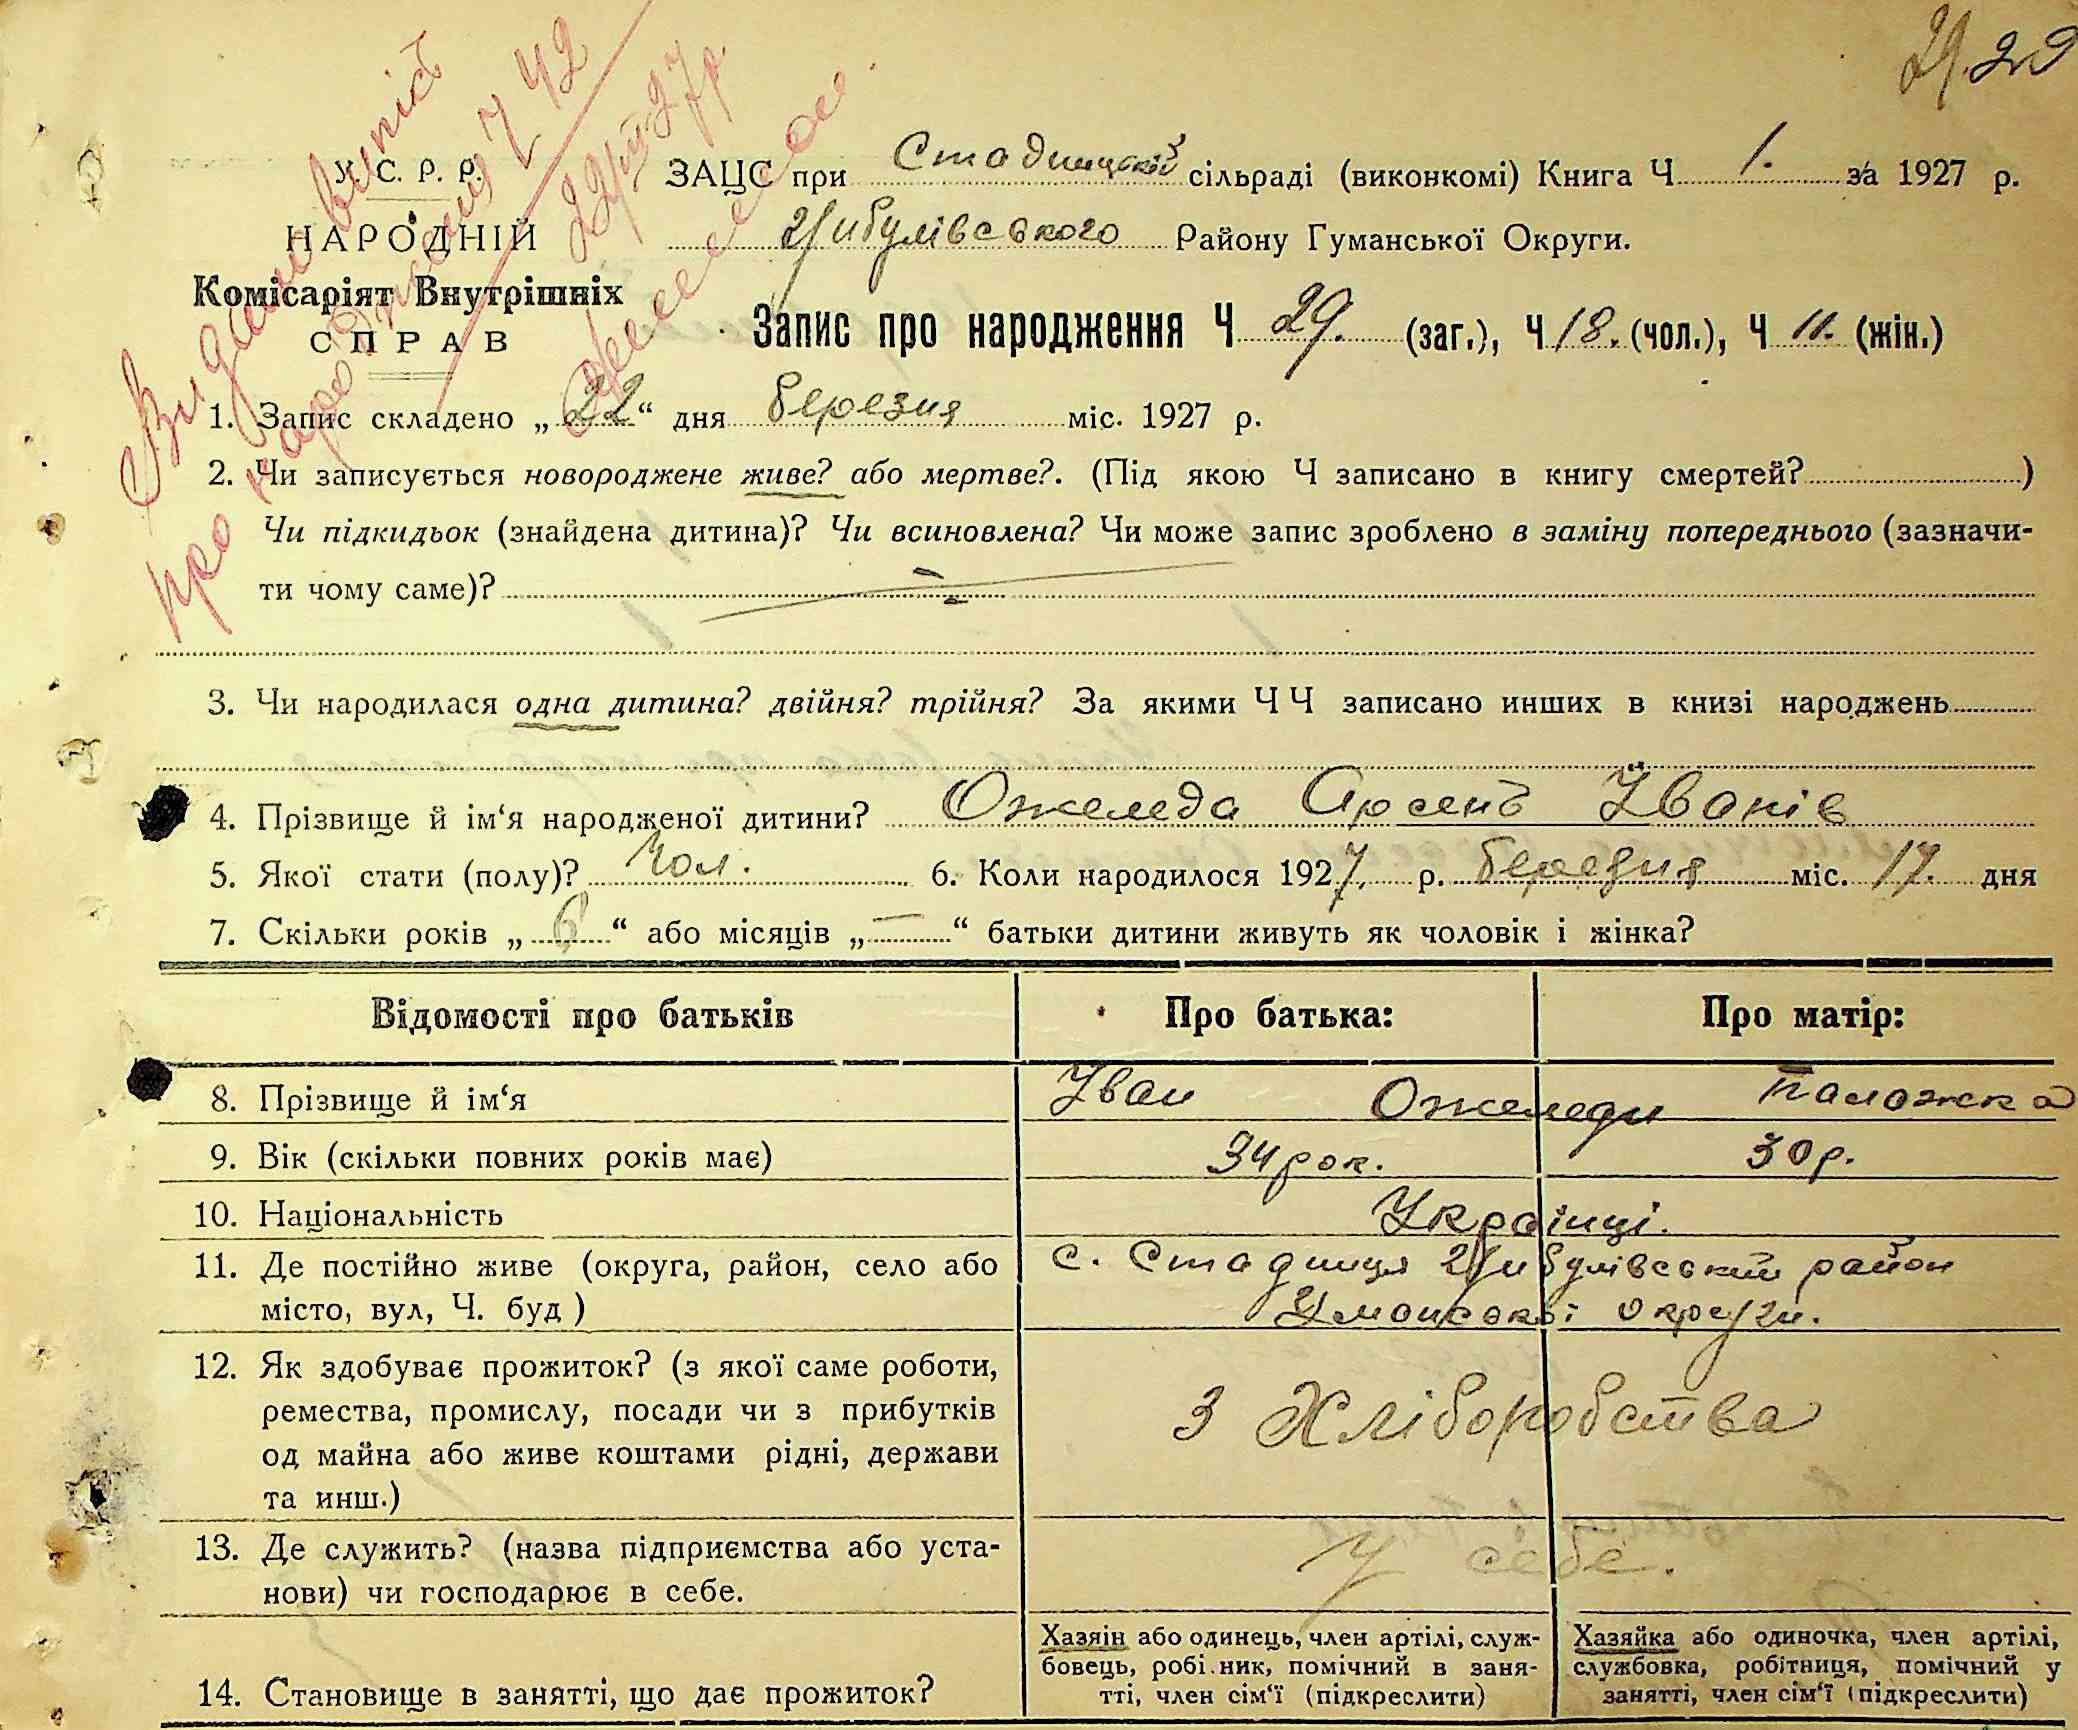 29. 29
Видано випіс
про народження 7 42
22/III 27 р.
У. С. Р. Р.
НАРОДНІЙ
Комісаріят Внутрішніх
СПРАВ
ЗАЦС при Стадницькій сільраді (виконкомі) Книга Ч 1. за 1927 р.
Цибулівського Району Гуманської Округи.
Запис про народження Ч 29. (заг.), Ч 18. (чол.), Ч 11. (жін.)
1. Запис складено „22“ дня березня міс. 1927 р.
2. Чи записується новороджене живе? або мертве?. (Під якою Ч записано в книгу смертей? )
Чи підкидьок (знайдена дитина)? Чи всиновлена? Чи може запис зроблено в заміну попереднього (зазначи-
ти чому саме)?
3. Чи народилася одна дитина? двійня? трійня? За якими Ч Ч записано инших в книзі народжень
4. Прізвище й ім‘я народженої дитини? Ожеледа Арсень Іванів
5. Якої стати (полу)? Чол. 6. Коли народилося 1927. р. березня міс. 17. дня
7. Скільки років „6“ або місяців „—“ батьки дитини живуть як чоловік і жінка?
Відомості про батьків Про батька: Про матір:
8. Прізвище й ім‘я Іван Ожеледи Палажка
9. Вік (скільки повних років має) 34 рок. 30 р.
10. Національність Українці.
11. Де постійно живе (округа, район, село або с. Стадниця Цибулівський район
місто, вул, Ч. буд ) Уманської округи.
12. Як здобуває прожиток? (з якої саме роботи,
ремества, промислу, посади чи з прибутків З Хліборобства
од майна або живе коштами рідні, держави
та инш.)
13. Де служить? (назва підприємства або уста- У себе.
нови) чи господарює в себе.
14. Становище в занятті, що дає прожиток?
Хазяін або одинець, член артілі, служ-
бовець, робі.ник, помічний в заня-
тті, член сім‘ї (підкреслити)
Хазяйка або одиночка, член артілі,
службовка, робітниця, помічний у
занятті, член сім‘ї (підкреслити)